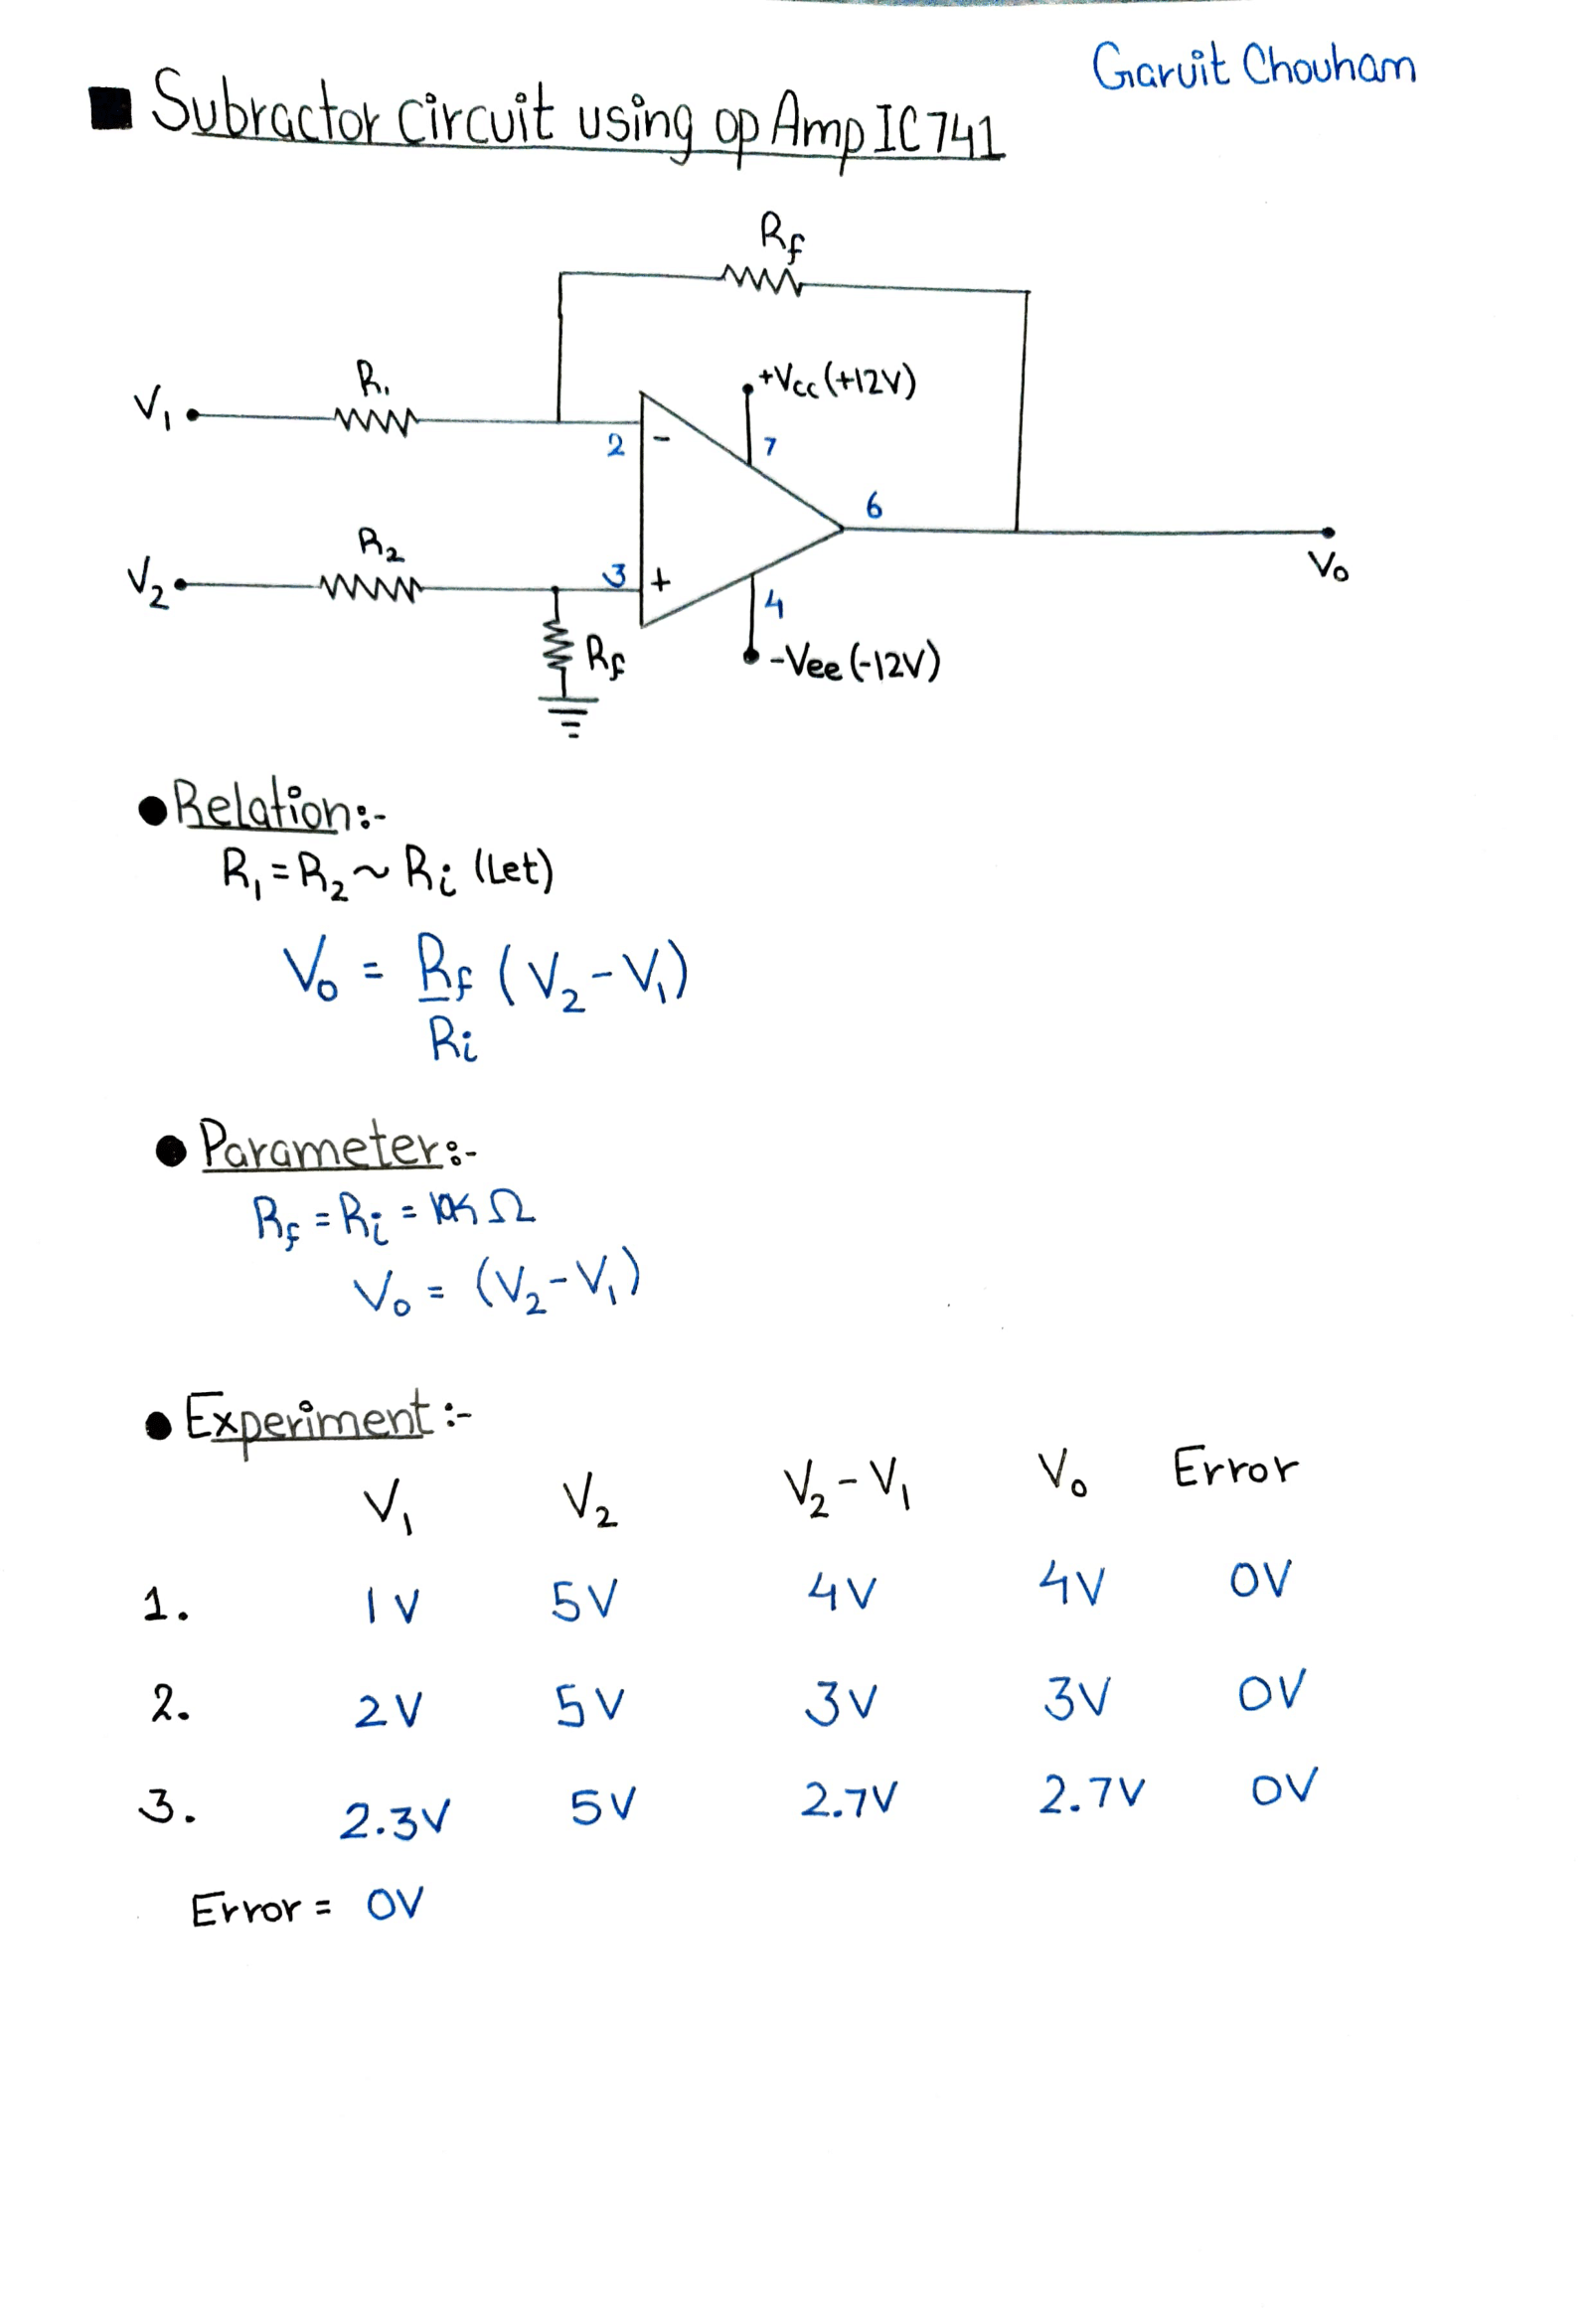 Garvit Chouhan
Subractor circuit using op Amp IC 741
Rf
+Vcc (+12V)
R1
V1
2
-
7
6
R2
V2
3
+
4
Vo
Rf
-Vee (-12V)
Relation:-
R1 = R2 ~ Ri (Let)
Vo = Rf (V2 - V1)
Ri
Parameter:-
Rf = Ri = 10K Ω
Vo = (V2 - V1)
Experiment :-
V1 V2 V2 - V1 Vo Error
1. 1V 5V 4V 4V 0V
2. 2V 5V 3V 3V 0V
3. 2.3V 5V 2.7V 2.7V 0V
Error = 0V